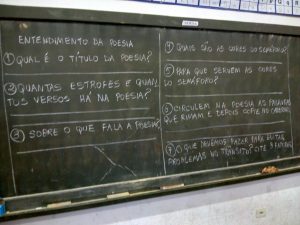 ENTENDIMENTO DA POESIA
① QUAL É O TÍTULO DA POESIA?
② QUANTAS ESTROFES E QUAN
TUS VERSOS HÁ NA POESIA?
③ SOBRE O QUE FALA A POESIA?
④ QUAIS SÃO AS CORES DO SEMÁFORO?
⑤ PARA QUE SERVEM AS CORES
DO SEMÁFORO?
⑥ CIRCULEM NA POESIA AS PALAVRAS
QUE RIMAM E DEPOIS COPIE NO CADERNO.
⑦ O QUE DEVEMOS FAZER PARA EVITAR
PROBLEMAS NO TRÂNSITO? CITE